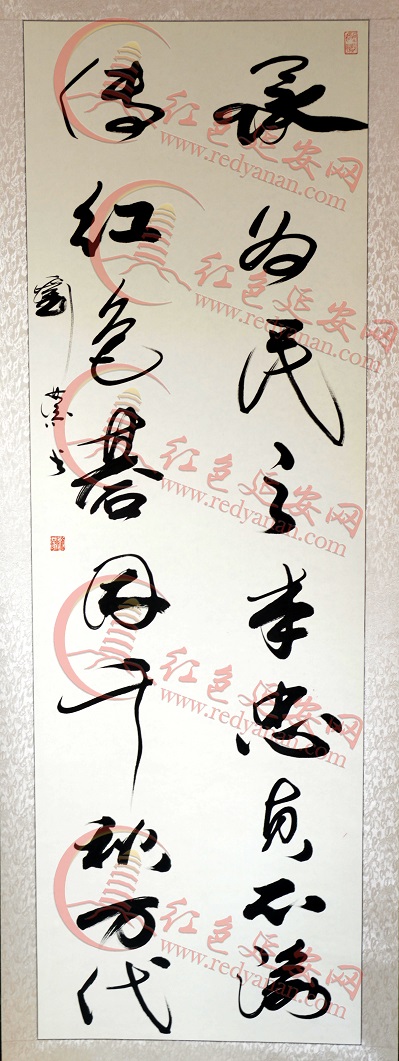 承为民之本忠贞不渝
傳红色基因千秋万代
红色延安网
www.redyanan.com
红色延安网
www.redyanan.com
红色延安网
www.redyanan.com
红色延安网
www.redyanan.com
红色延安网
www.redyanan.com